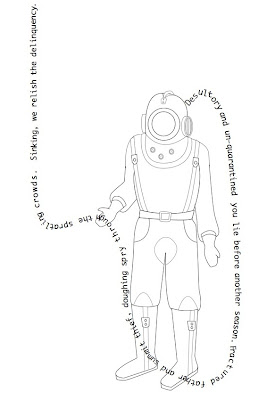 Desultory and un-quarantined you lie before another season. Fractured father and summit thief, doughing spry through the spratling crowds. Sinking, we relish the delinquency.